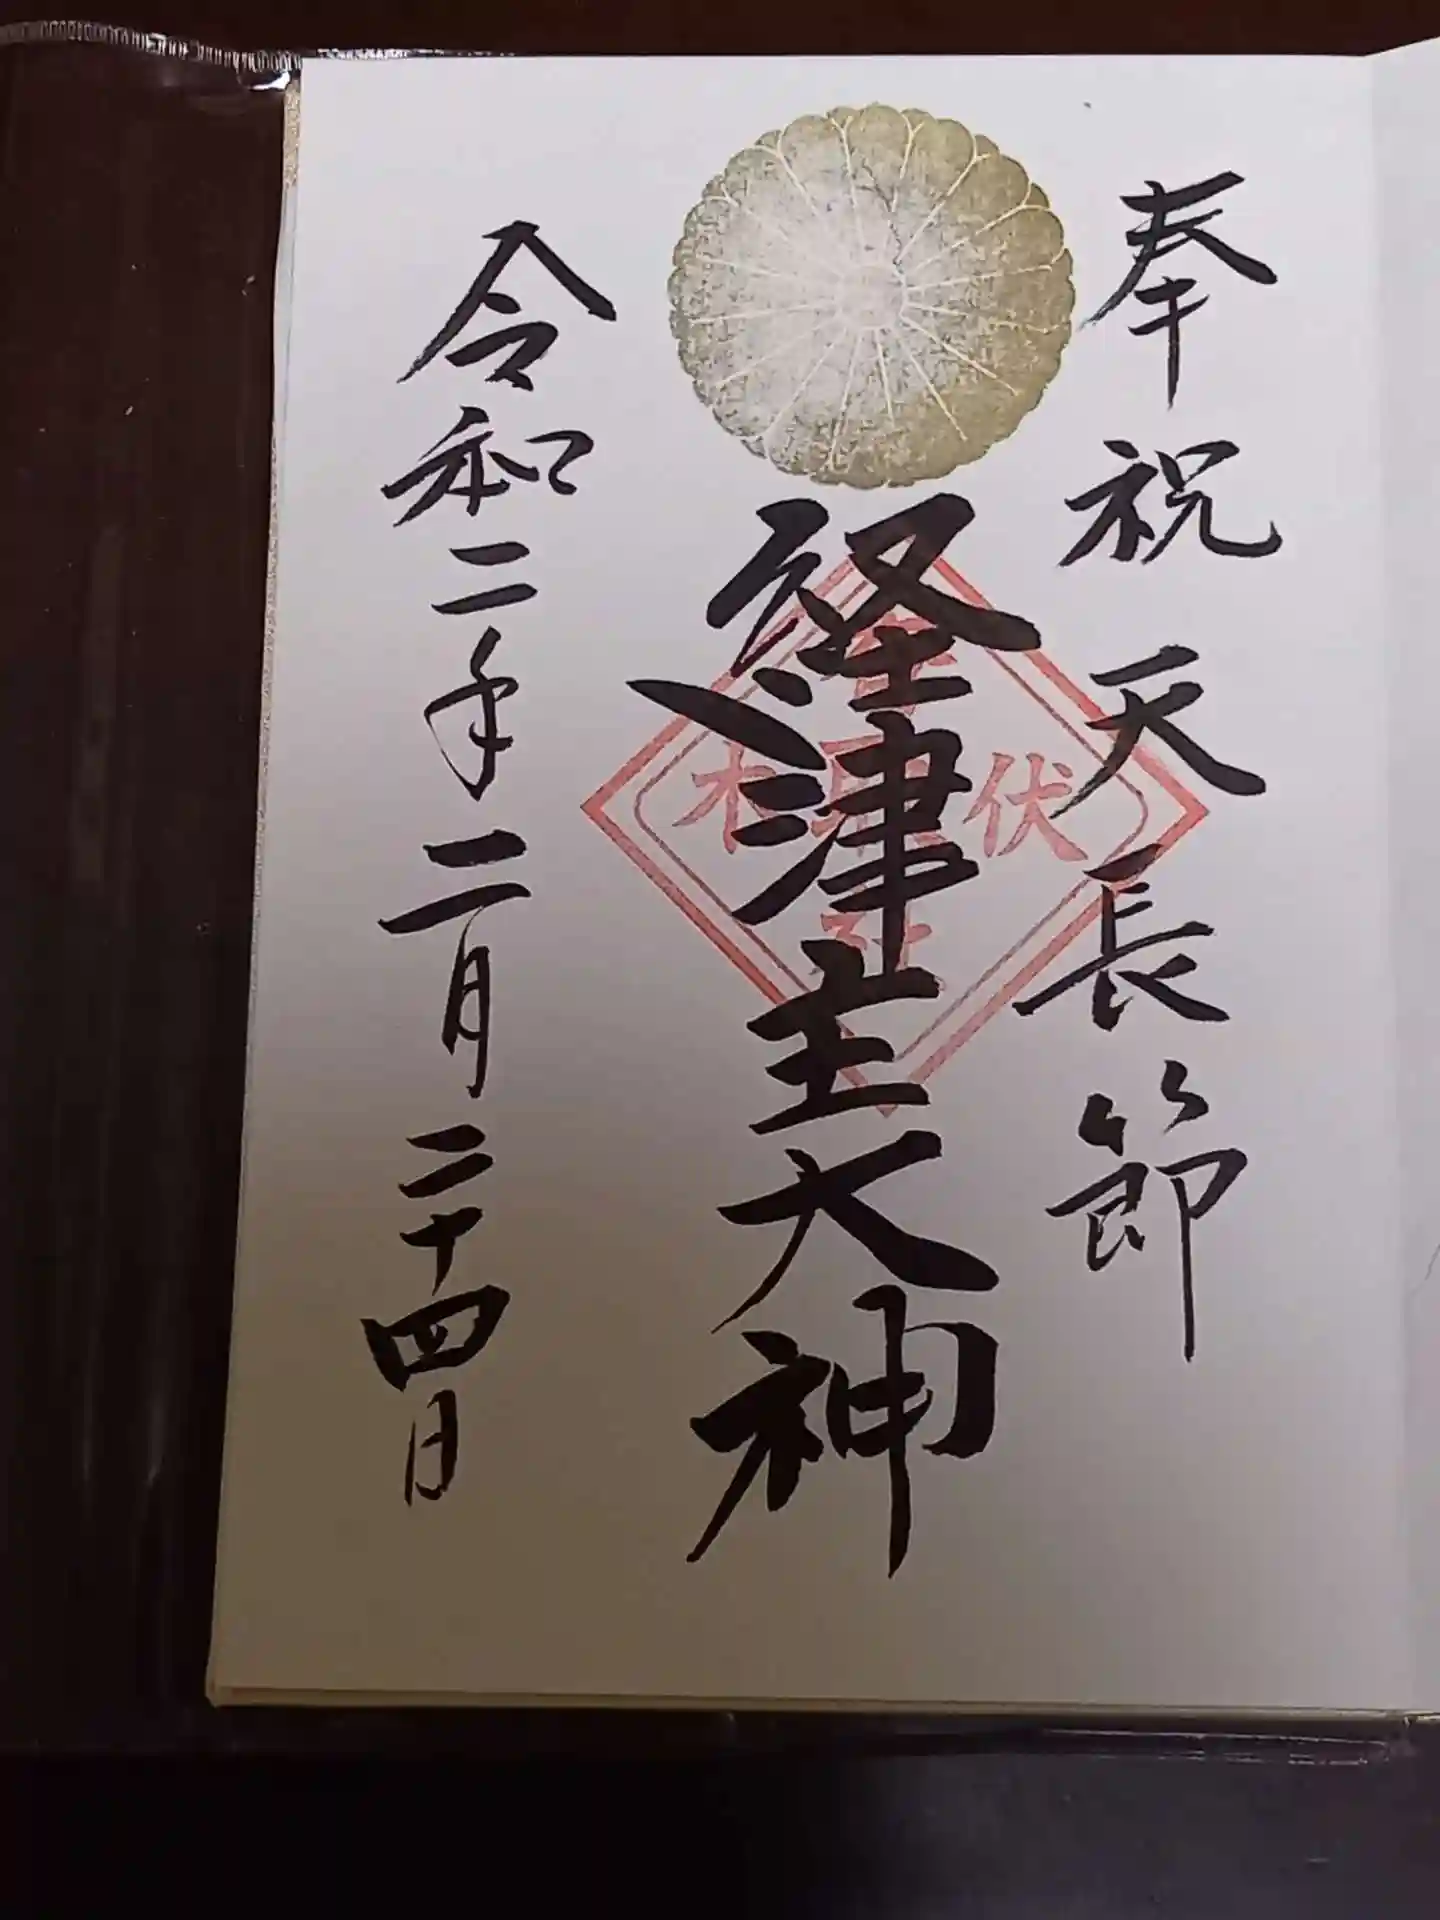 奉祝天長節
経津主大神
令和二年二月二十四日
伏木